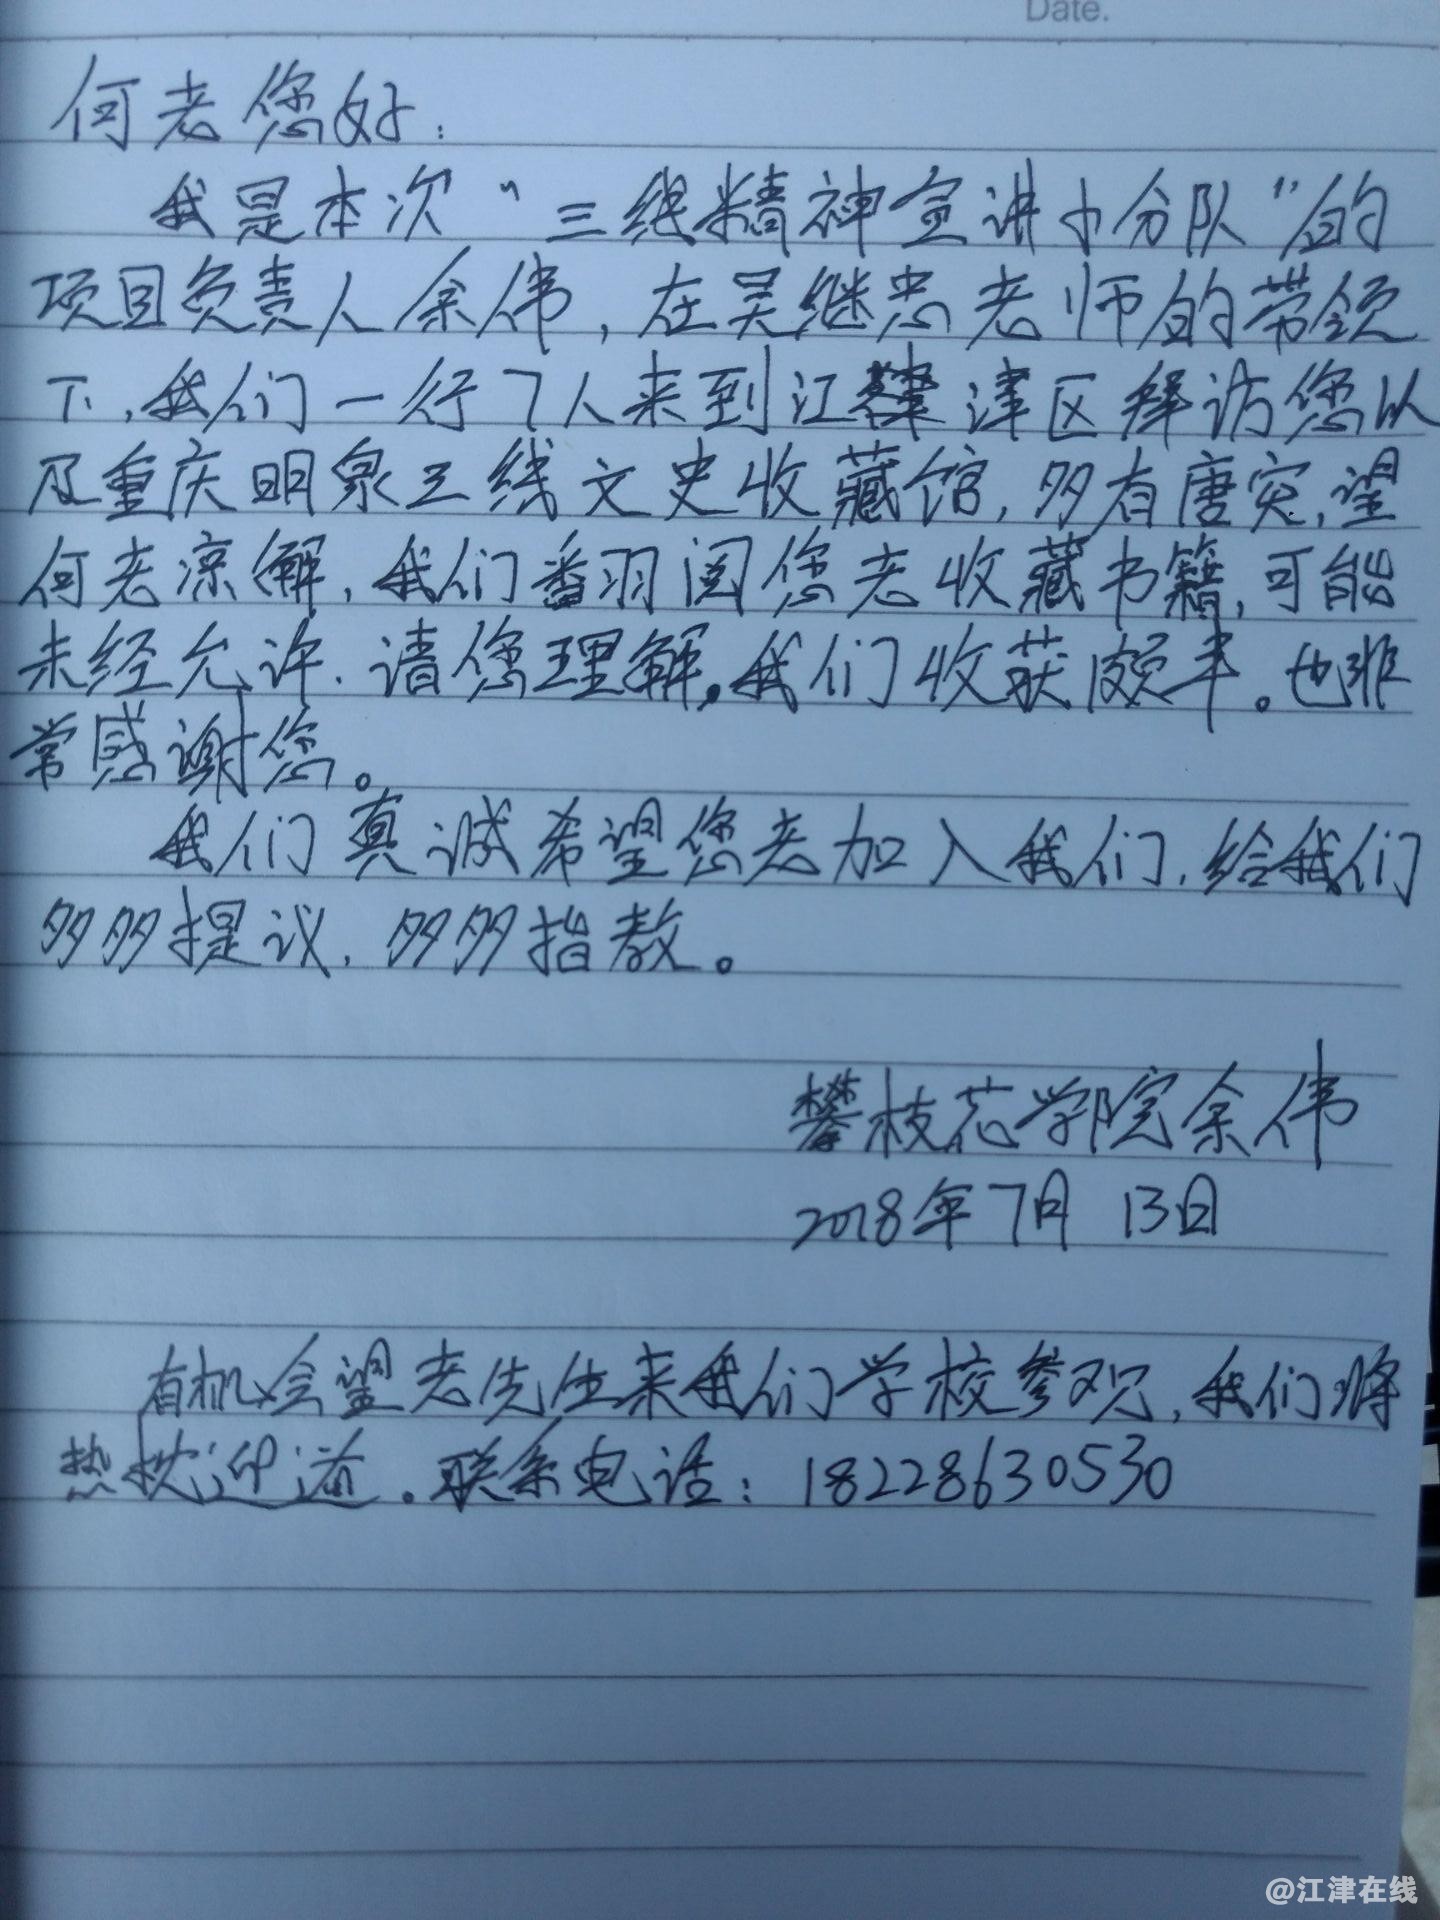 Date.
何老您好：
我是本次“三线精神宣讲小分队”的
项目负责人余伟，在吴继忠老师的带领
下，我们一行7人来到江津区拜访您以
及重庆明泉三线文史收藏馆，多有唐突，望
何老凉解，我们翻阅您老收藏书籍，可能
未经允许，请您理解。我们收获颇丰。也非
常感谢您。
我们真诚希望您老加入我们，给我们
多多提议，多多指教。
攀枝花学院余伟
2018年7月 13日
有机会望老先生来我们学校参观，我们将
热忱迎送。联系电话：18228630530
@江津在线